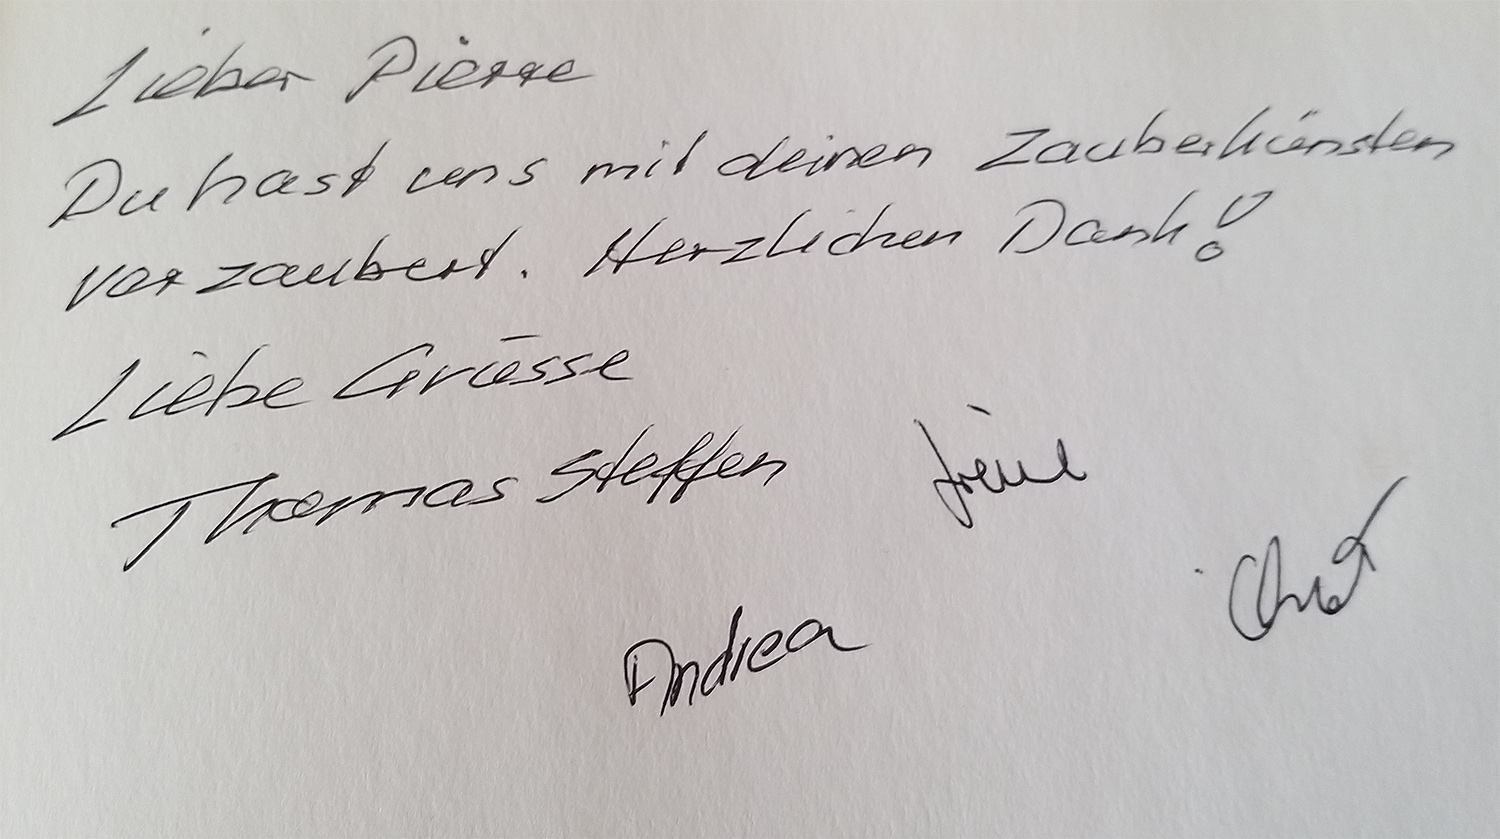 Lieber Pierre
Du hast uns mit deinen Zauberkünsten
verzaubert. Herzlichen Dank!
Liebe Grüsse
Thomas Steffen Irène
Andrea